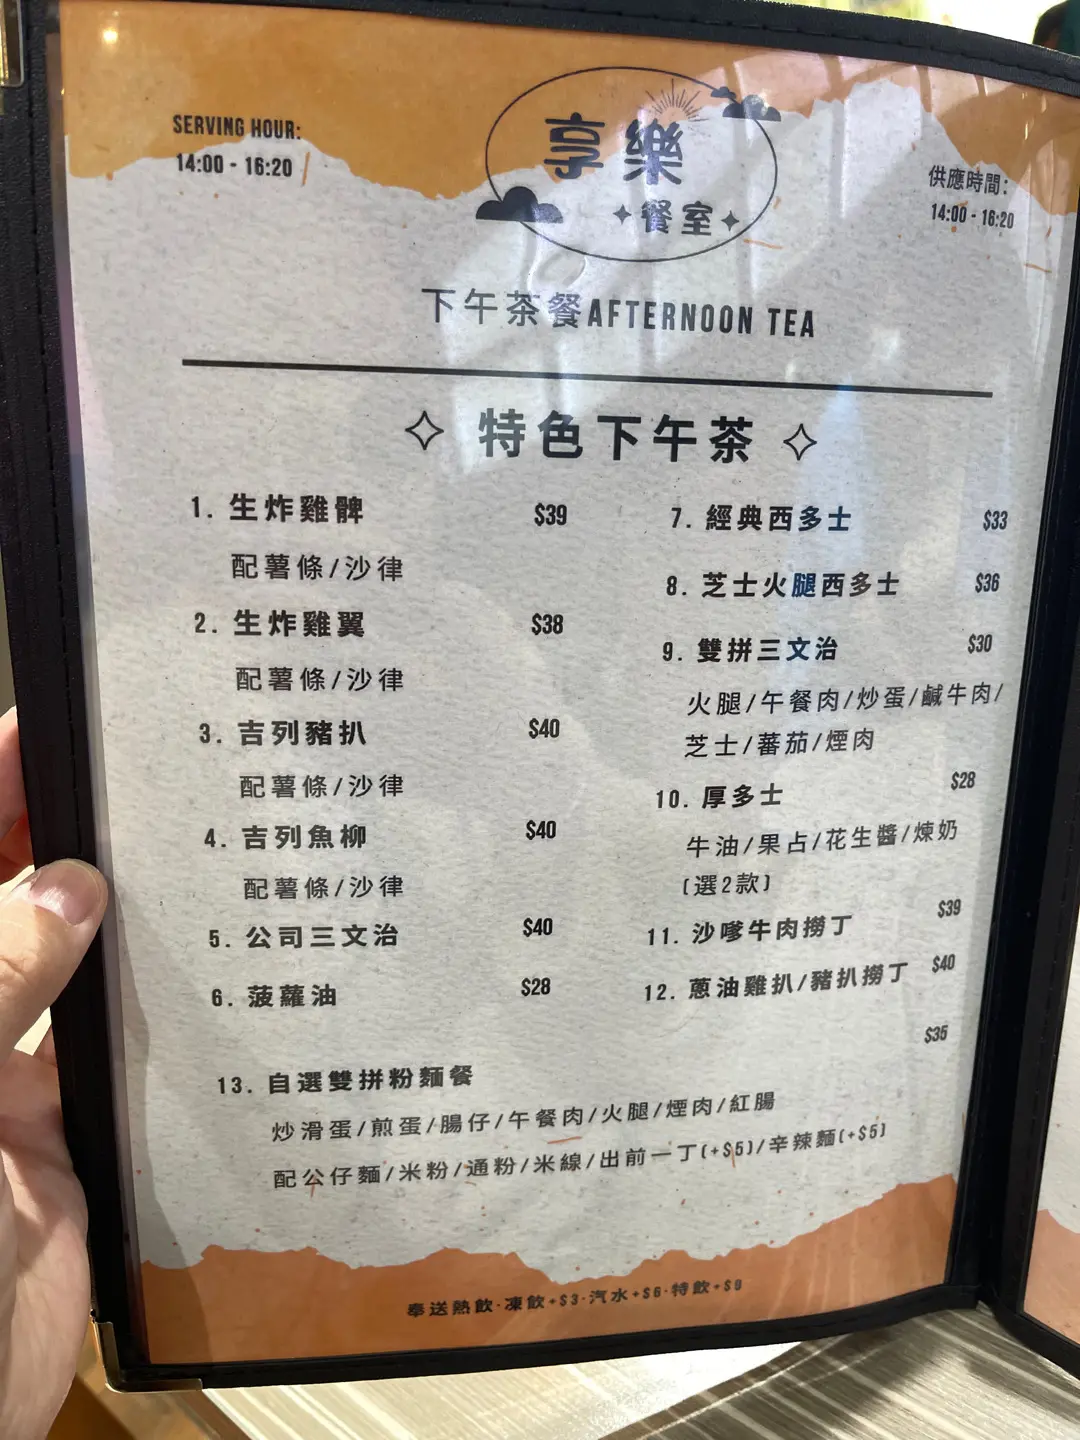 SERVING HOUR:
14:00 - 16:20
享樂
餐室
供應時間:
14:00 - 16:20
下午茶餐AFTERNOON TEA
特色下午茶
1. 生炸雞髀 $39
配薯條/沙律
2. 生炸雞翼 $38
配薯條/沙律
3. 吉列豬扒 $40
配薯條/沙律
4. 吉列魚柳 $40
配薯條/沙律
5. 公司三文治 $40
6. 菠蘿油 $28
7. 經典西多士 $33
8. 芝士火腿西多士 $36
9. 雙拼三文治 $30
火腿/午餐肉/炒蛋/鹹牛肉/
芝士/蕃茄/煙肉
10. 厚多士 $28
牛油/果占/花生醬/煉奶
(選2款)
11. 沙嗲牛肉撈丁 $39
12. 蔥油雞扒/豬扒撈丁 $40
13. 自選雙拼粉麵餐 $35
炒滑蛋/煎蛋/腸仔/午餐肉/火腿/煙肉/紅腸
配公仔麵/米粉/通粉/米線/出前一丁(+$5)/辛辣麵(+$5)
奉送熱飲·凍飲+$3·汽水+$6·特飲+$9